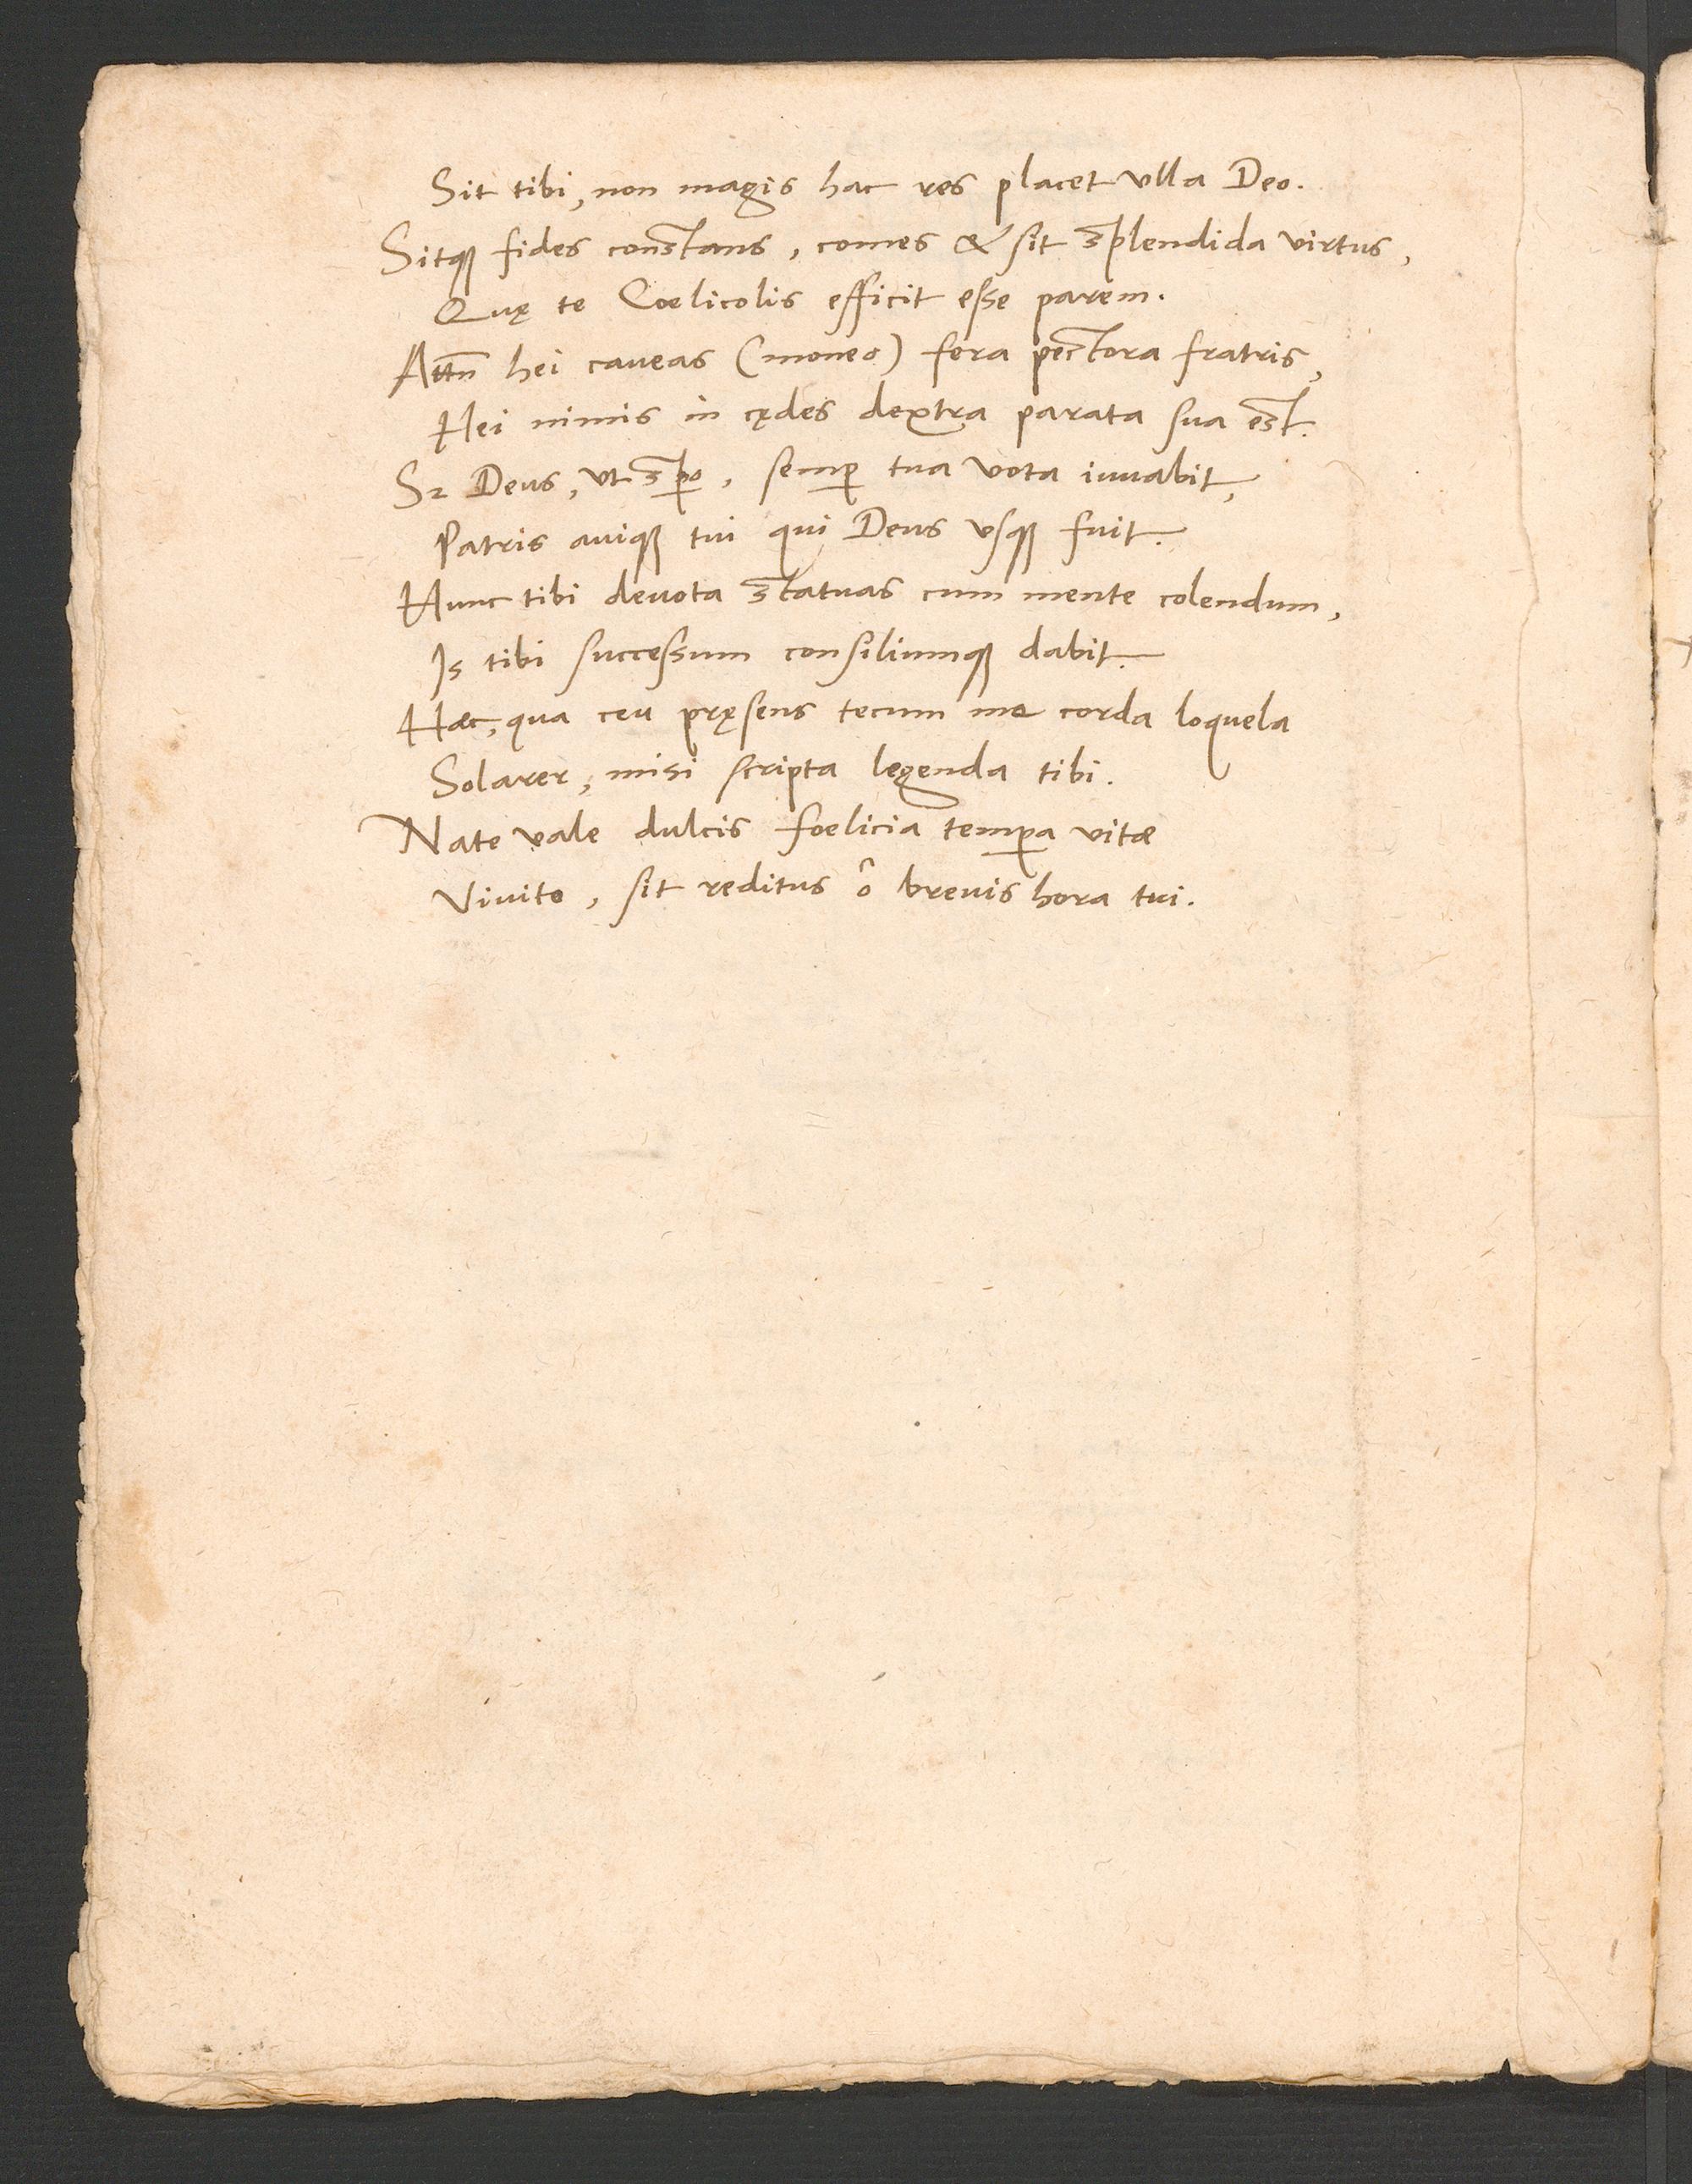 Sit tibi, non magis hac res placet ulla Deo.
Sitqꝫ fides constans, comes & sit splendida virtus,
Quę te Coelicolis efficit esse parem.
Attn̄ hei caveas (moneo) fera pectora fratris,
Hei nimis in cędes dextra parata sua est.
Sꝫ Deus, ut sꝑo, semꝑ tua vota iuvabit,
Patris auiqꝫ tui qui Deus usqꝫ fuit.
Hunc tibi deuota statuas cum mente colendum,
Is tibi successum consiliumqꝫ dabit.
Haec, qua ceu pręsens tecum me corda loquela
Solarer, misi scripta legenda tibi.
Nate vale dulcis foelicia temꝑa vitae
Viuito, sit reditus ô breuis hora tui.